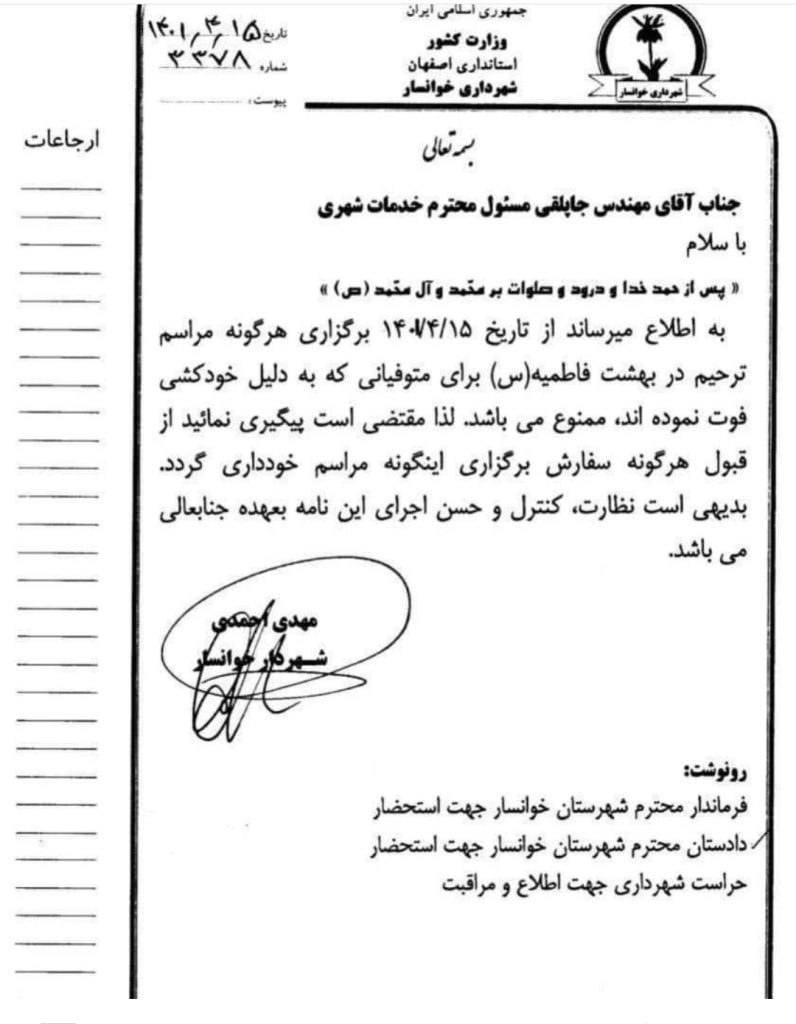 جمهوری اسلامی ایران
وزارت کشور
استانداری اصفهان
شهرداری خوانسار
شهرداری خوانسار
تاریخ ۱۴۰۱/۴/۱۵
شماره ۳۳۷۸
پیوست:
ارجاعات
بسمه تعالی
جناب آقای مهندس جاپلقی مسئول محترم خدمات شهری
با سلام
« پس از حمد خدا و درود و صلوات بر محمّد و آل محمّد (ص) »
به اطلاع میرساند از تاریخ ۱۴۰۱/۴/۱۵ برگزاری هرگونه مراسم
ترحیم در بهشت فاطمیه(س) برای متوفیانی که به دلیل خودکشی
فوت نموده اند، ممنوع می باشد. لذا مقتضی است پیگیری نمائید از
قبول هرگونه سفارش برگزاری اینگونه مراسم خودداری گردد.
بدیهی است نظارت، کنترل و حسن اجرای این نامه بعهده جنابعالی
می باشد.
مهدی احمدی
شهردار خوانسار
رونوشت:
فرماندار محترم شهرستان خوانسار جهت استحضار
دادستان محترم شهرستان خوانسار جهت استحضار
حراست شهرداری جهت اطلاع و مراقبت